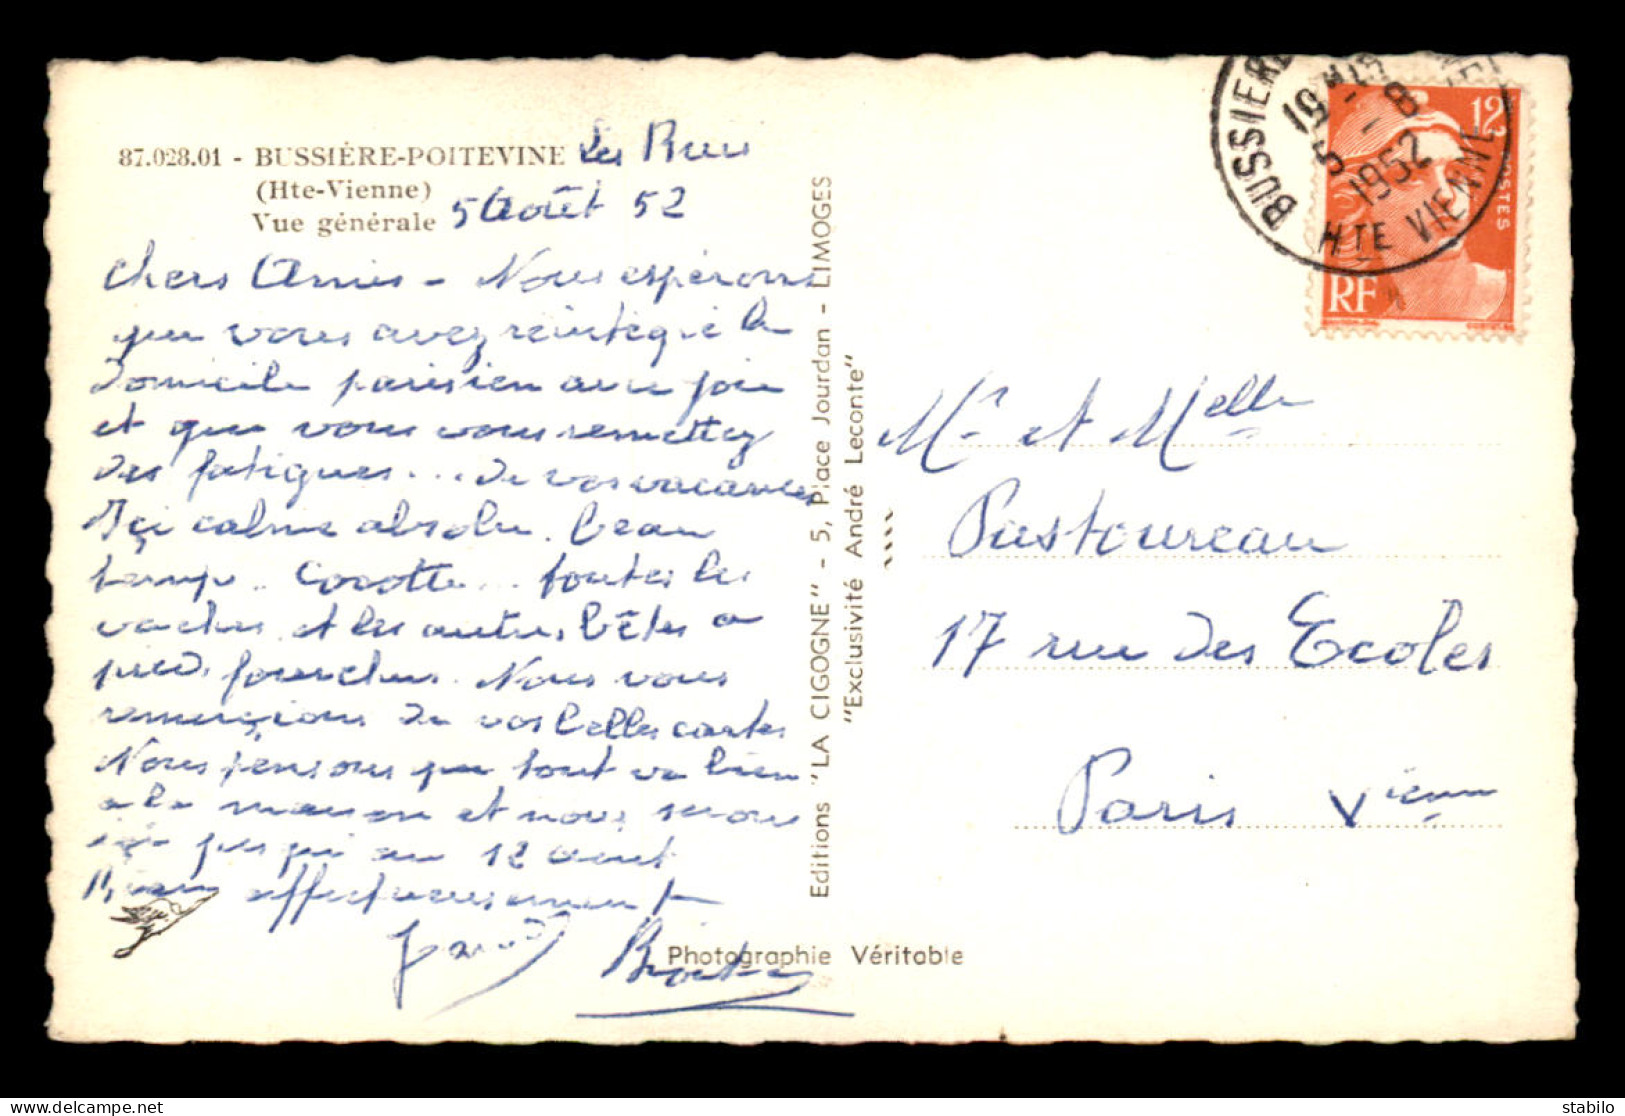 87.028.01 - BUSSIÈRE-POITEVINE
(Hte-Vienne)
Vue générale
Les
5 Août 52
Chers Amis - Nous espérons
que vous avez réintégré le
domicile parisien avec joie
et que vous vous remettez
des fatigues... de vos vacances
Içi calme absolu. beau
temps.. Cocotte... toutes les
vaches et les autres bêtes a
pied fourchus. Nous vous
remerçions de vos belles cartes
Nous pensons que tout va bien
a la maison et nous serons
içi jusqu'au 12 aout
Bien affectueusement
Editions "LA CIGOGNE" - 5, Place Jourdan - LIMOGES
"Exclusivité André Leconte"
Photographie Véritable
BUSSIERE
19
5 - 8
1952
HTE VIENNE
12
POSTES
RF
Mr et Melle
Pastoureau
17 rue des Ecoles
Paris Vieme
stabilo
delcampe.net